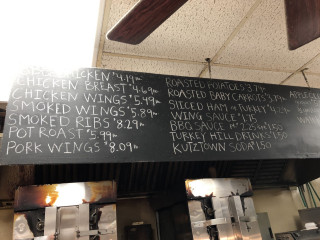 CHICKEN $4.19
CHICKEN BREAST $4.69
CHICKEN WINGS $5.49
SMOKED WINGS $5.89
SMOKED RIBS $8.29
POT ROAST $5.99
PORK WINGS $8.09
ROASTED POTATOES
ROASTED BABY CARROTS
SLICED HAM or TURKEY
WING SAUCE
BBQ SAUCE
TURKEY HILL DRINKS $1.50
KUTZTOWN SODA $1.50